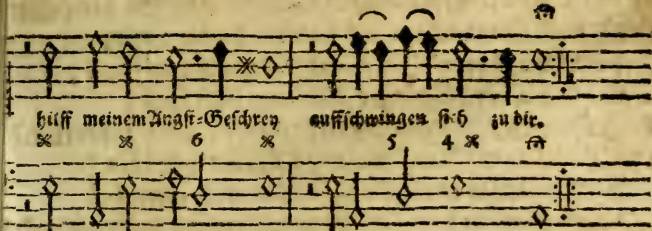 hilff meinem Angst-Geschrey auffschwingen sich zu dir.
6 5 4